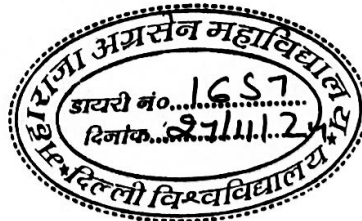 महाराजा अग्रसेन महाविद्यालय
डायरी नं० 1657
दिनांक 27/11/24
दिल्ली विश्वविद्यालय